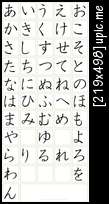 あいうえお
かきくけこ
さしすせそ
たちつてと
なにぬねの
はひふへほ
まみむめも
や ゆ よ
らりるれろ
わ を
ん
[219x498]upic.me